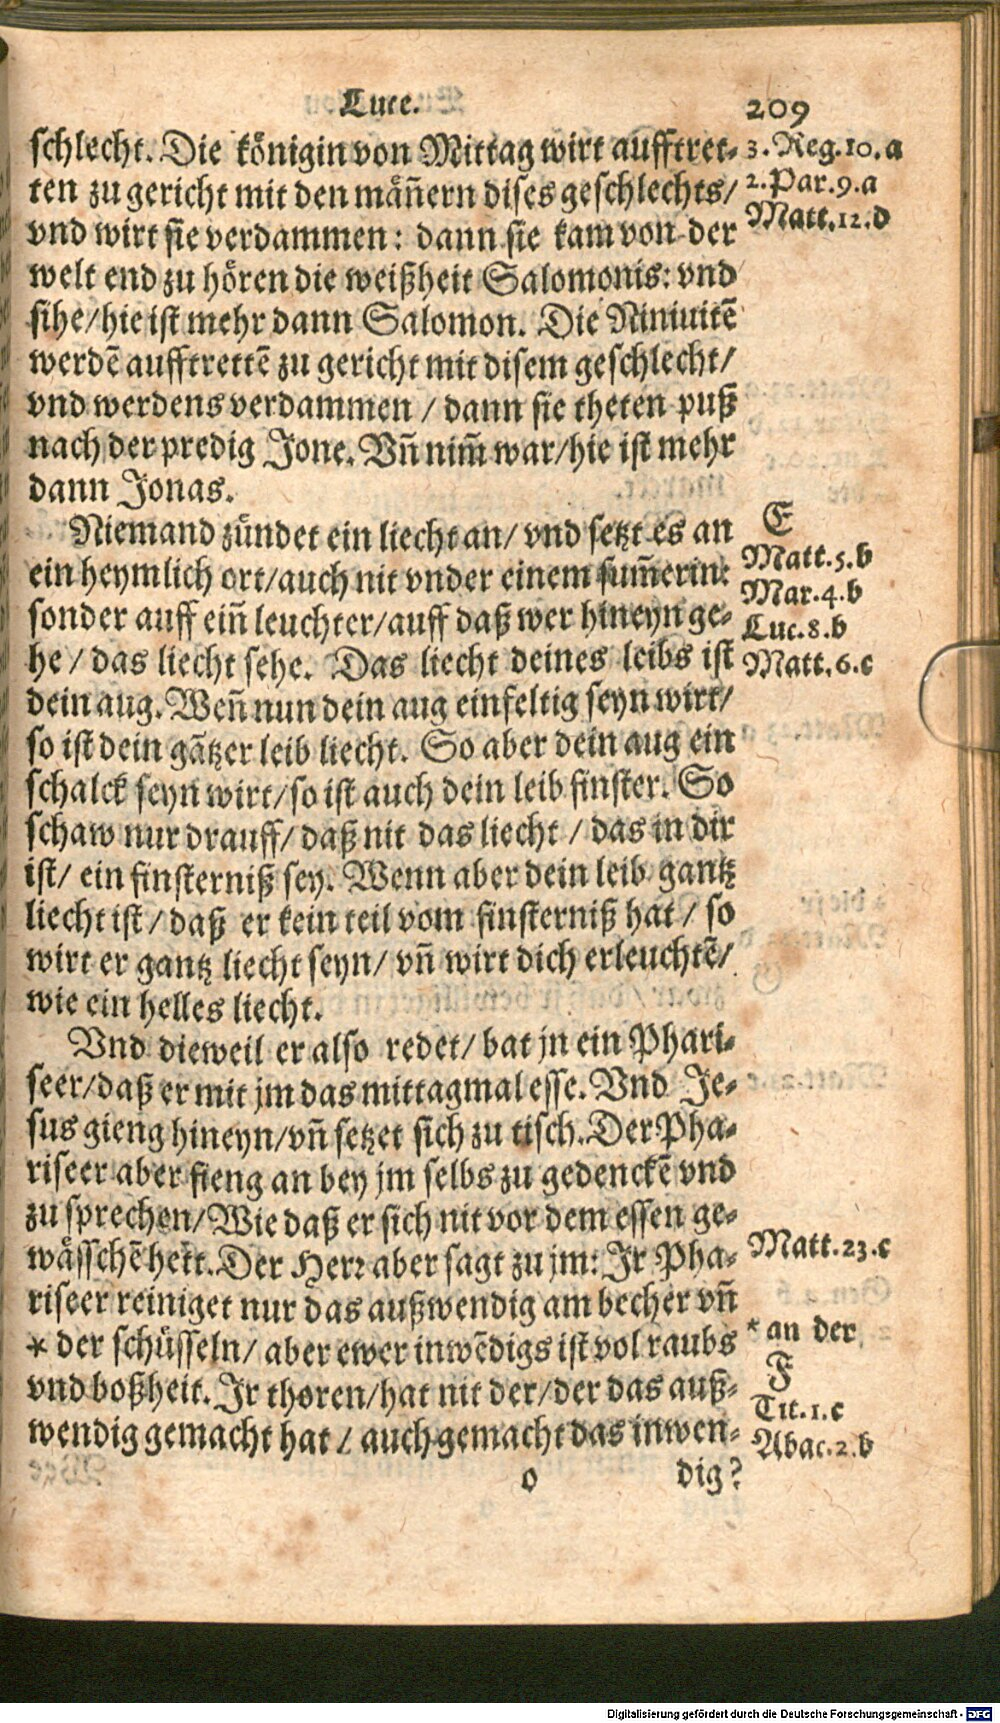 Luce.
209
schlecht. Die königin von Mittag wirt aufftret-
ten zu gericht mit den mañern dises geschlechts/
vnd wirt sie verdammen: dann sie kam von der
welt end zu hören die weißheit Salomonis: vnd
sihe/hie ist mehr dann Salomon. Die Niniuitẽ
werdẽ aufftrettẽ zu gericht mit disem geschlecht/
vnd werdens verdammen / dann sie theten puß
nach der predig Jone. Vñ nim̃ war/hie ist mehr
dann Jonas.
3. Reg. 10. a
2. Par. 9. a
Matt. 12. d
Niemand zündet ein liecht an/ vnd setzt es an
ein heymlich ort/auch nit vnder einem sum̃erin:
sonder auff eiñ leuchter/auff daß wer hineyn ge-
he / das liecht sehe. Das liecht deines leibs ist
dein aug. Weñ nun dein aug einfeltig seyn wirt/
so ist dein gãtzer leib liecht. So aber dein aug ein
schalck seyn wirt/so ist auch dein leib finster. So
schaw nur drauff/ daß nit das liecht / das in dir
ist/ ein finsterniß sey. Wenn aber dein leib gantz
liecht ist / daß er kein teil vom finsterniß hat / so
wirt er gantz liecht seyn/ vñ wirt dich erleuchtẽ/
wie ein helles liecht.
E
Matt. 5. b
Mar. 4. b
Luc. 8. b
Matt. 6. c
Vnd dieweil er also redet/ bat jn ein Phari-
seer/daß er mit jm das mittagmal esse. Vnd Je-
sus gieng hineyn/vñ setzet sich zu tisch. Der Pha-
riseer aber fieng an bey jm selbs zu gedenckẽ vnd
zu sprechen/Wie daß er sich nit vor dem essen ge-
wässchẽ hett. Der Herr aber sagt zu jm: Jr Pha-
riseer reiniget nur das außwendig am becher vñ
* der schüsseln/ aber ewer inwẽdigs ist vol raubs
vnd boßheit. Jr thoren/hat nit der/der das auß-
wendig gemacht hat / auch gemacht das inwen-
Matt. 23. c
* an der
F
Tit. 1. c
Abac. 2. b
o
dig?
Digitalisierung gefördert durch die Deutsche Forschungsgemeinschaft - DFG